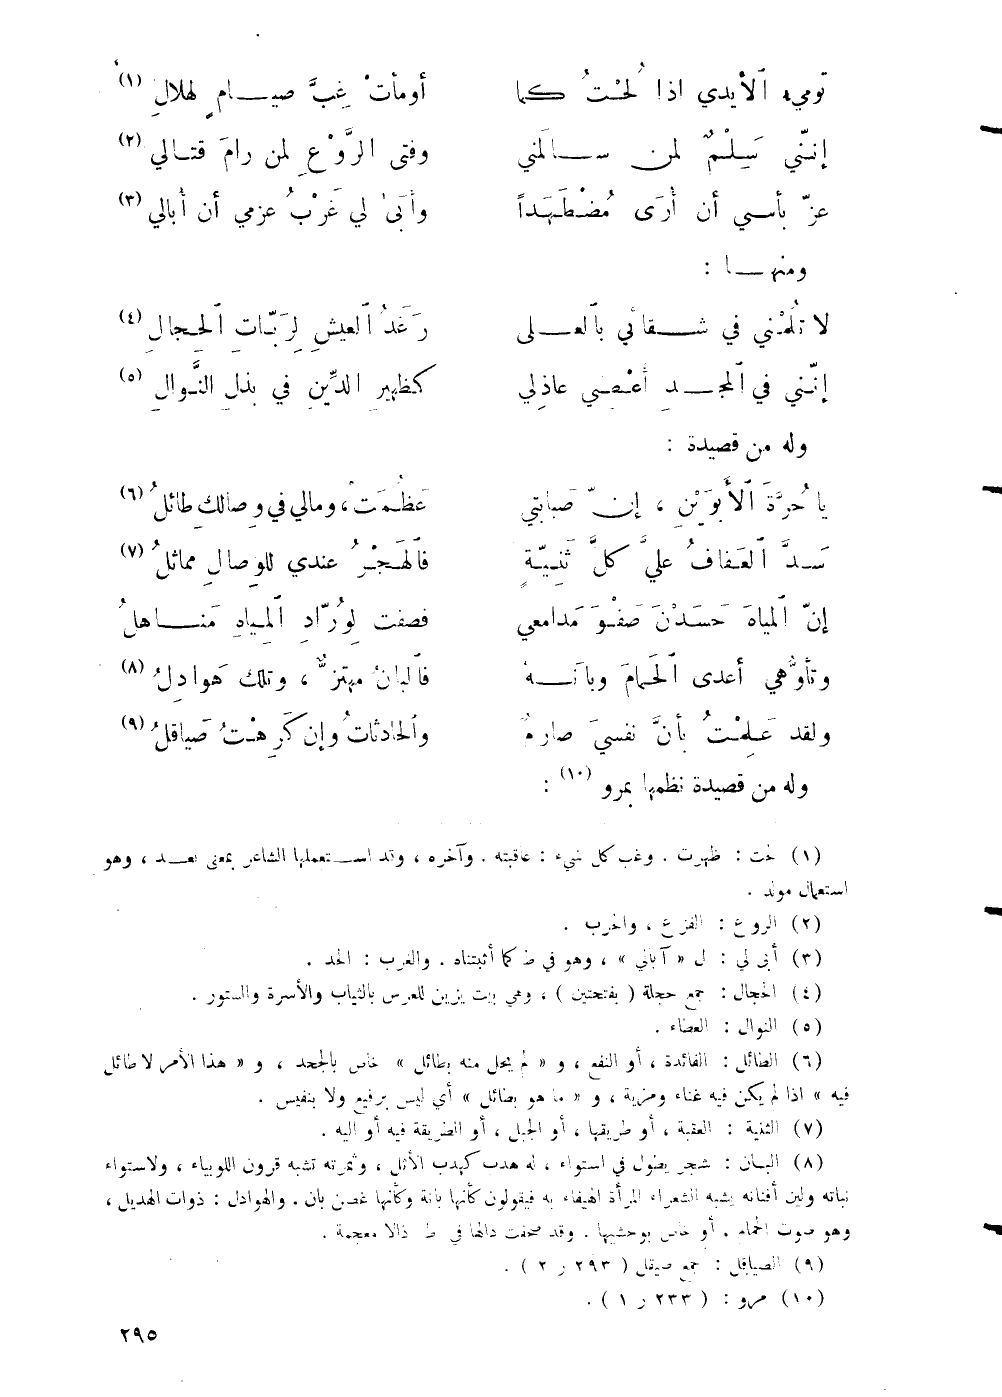 تومیء ٱلأيدي اذا لُحْتُ كما أومأتْ غِبَّ صيــامٍ لهلالِ (١)
إنّني سَلِمٌ لمن ســالمَني وفتى الرَّوْعِ لمن رامَ قتــالي (٢)
عزّ بأسي أن أُرَى مُضْطَهَداً وأبىٰ لي غَرْبُ عزمي أن أُبالي (٣)
ومنهــا :
لا تلُمْني في شــقائي بٱلعــلى رَغَدُ ٱلعيشِ لِرَبّاتِ ٱلحِجالِ (٤)
إنّني في ٱلمجــدِ أَعْصي عاذِلي كظهيرِ الدِّينِ في بذلِ النَّوالِ (٥)
وله من قصيدة :
يا حُرَّةَ ٱلأَبوَيْنِ ، إنّ صبابتي عَظُمَتْ ، ومالي في وِصالكِ طائلُ (٦)
سَــدَّ ٱلعَفافُ عليَّ كلَّ ثَنِيّةٍ فٱلهَجْرُ عندي للوِصالِ مماثلُ (٧)
إنّ ٱلمياهَ حَسَدْنَ صَفْوَ مَدامعي فصفت لِوُرّادِ ٱلميــاهِ مَنــاهلُ
وتأوُّهي أعدى ٱلحَمامَ وبانَــهُ فٱلبانُ مهتزٌّ ، وتلك هَوادِلُ (٨)
ولقد عَلِمْتُ بأنَّ نفسيَ صارمٌ وٱلحادثاتُ وإن كَرِهْتُ صَياقلُ (٩)
وله من قصيدة نظمها بمرو (١٠) :
(١) لحت : ظهرت . وغب كل شيء : عاقبته . وآخره ، وقد استعملها الشاعر بمعنى بعــد ، وهو
استعمال مولد .
(٢) الروع : الفزع ، والحرب .
(٣) أبى لي : ل « آباني » ، وهو في ط كما أثبتناه . والغرب : الحد .
(٤) الحجال : جمع حجلة ( بفتحتين ) ، وهي بيت يزين للعرس بالثياب والأسرة والستور .
(٥) النوال : العطاء .
(٦) الطائل : الفائدة ، أو النفع ، و « لم يحل منه بطائل » خاص بالجحد ، و « هذا الأمر لا طائل
فيه » اذا لم يكن فيه غناء ومزية ، و « ما هو بطائل » أي ليس برفيع ولا بنفيس .
(٧) الثنية : العقبة ، أو طريقها ، أو الجبل ، أو الطريقة فيه أو اليه .
(٨) البــان : شجر يطول في استواء ، له هدب كهدب الأثل ، وثمرته تشبه قرون اللوبياء ، ولاستواء
نباته ولين أفنانه يشبه الشعراء المرأة الهيفاء به فيقولون كأنها بانة وكأنها غصن بان . والهوادل : ذوات الهديل ،
وهو صوت الحمام . أو خاص بوحشيها . وقد صحفت دالها في ط ذالا معجمة .
(٩) الصياقل : جمع صيقل ( ٢٩٣ ر ٢ ) .
(١٠) مرو : ( ٢٣٣ ر ١ ) .
٢٩٥